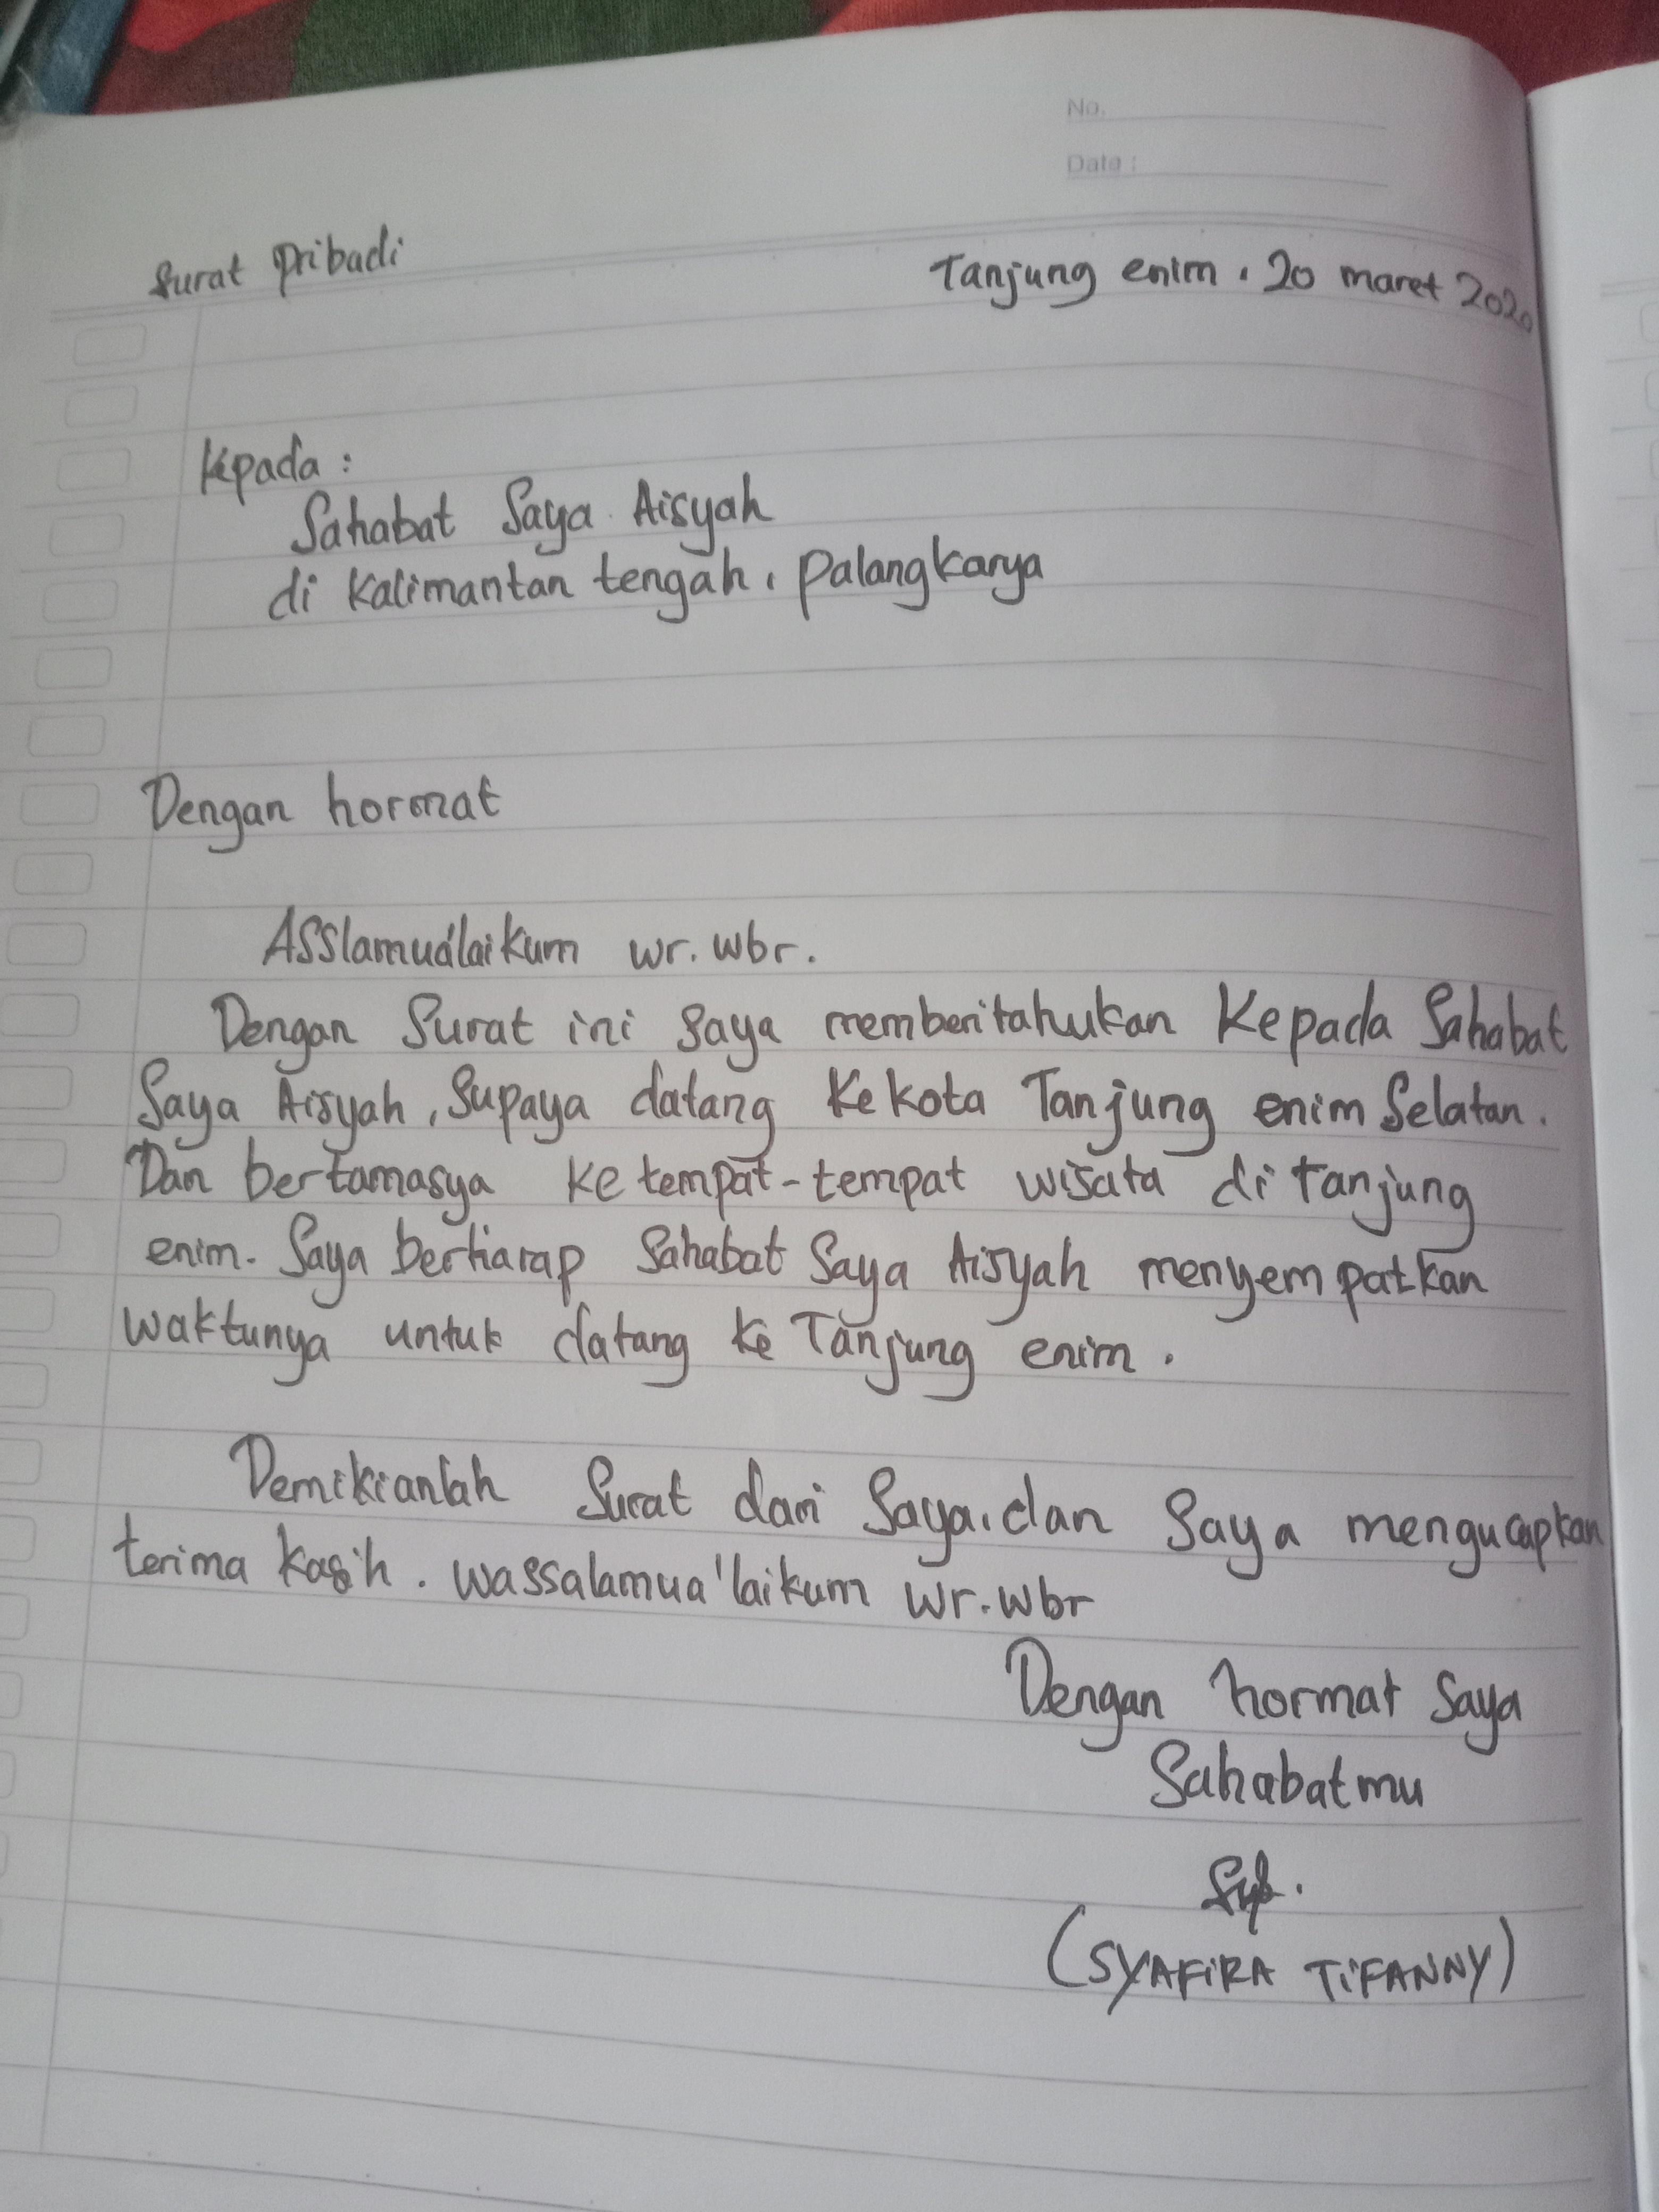 No.
Date :
Surat Pribadi
Tanjung enim, 20 maret 2020
Kepada :
Sahabat Saya Aisyah
di Kalimantan tengah, Palangkarya
Dengan hormat
Asslamuálaikum wr. wbr.
Dengan Surat ini Saya memberitahukan Kepada Sahabat
Saya Aisyah, Supaya datang Ke kota Tanjung enim Selatan.
Dan bertamasya Ke tempat-tempat wisata di Tanjung
enim. Saya berharap Sahabat Saya Aisyah menyempatkan
waktunya untuk datang ke Tanjung enim.
Demikianlah Surat dari Saya, dan Saya mengucapkan
terima kasih. wassalamua'laikum wr. wbr
Dengan hormat Saya
Sahabatmu
(SYAFiRA TiFANNY)